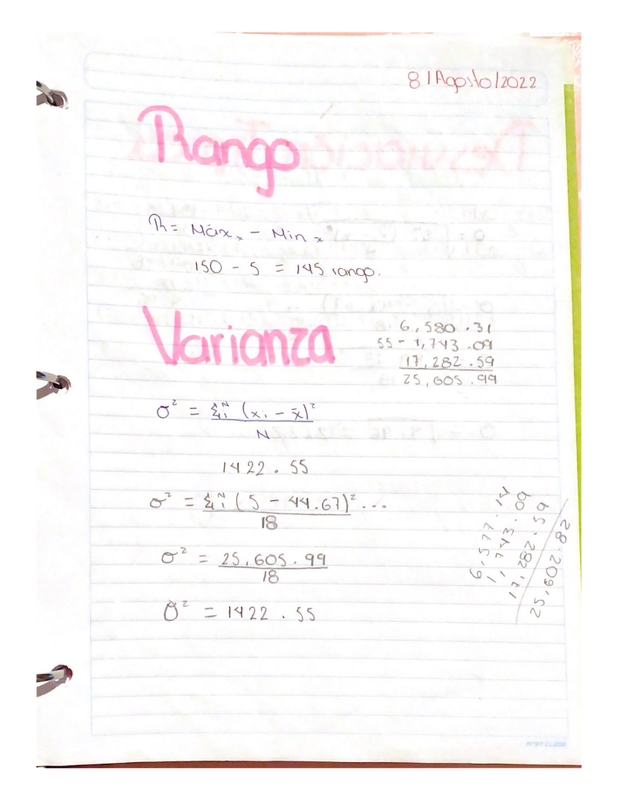 8/Agosto/2022
Rango
R = Máxₓ - Minₓ
150 - 5 = 145 rango.
Varianza
6,580.31
55 - 1,743.09
17,282.59
25,605.99
σ² = Σᵢᴺ (xᵢ - x̄)²
N
1422.55
σ² = Σᵢᴺ (5 - 44.67)² ...
18
σ² = 25,605.99
18
σ² = 1422.55
6,577.14
1,743.09
17,282.59
25,602.82